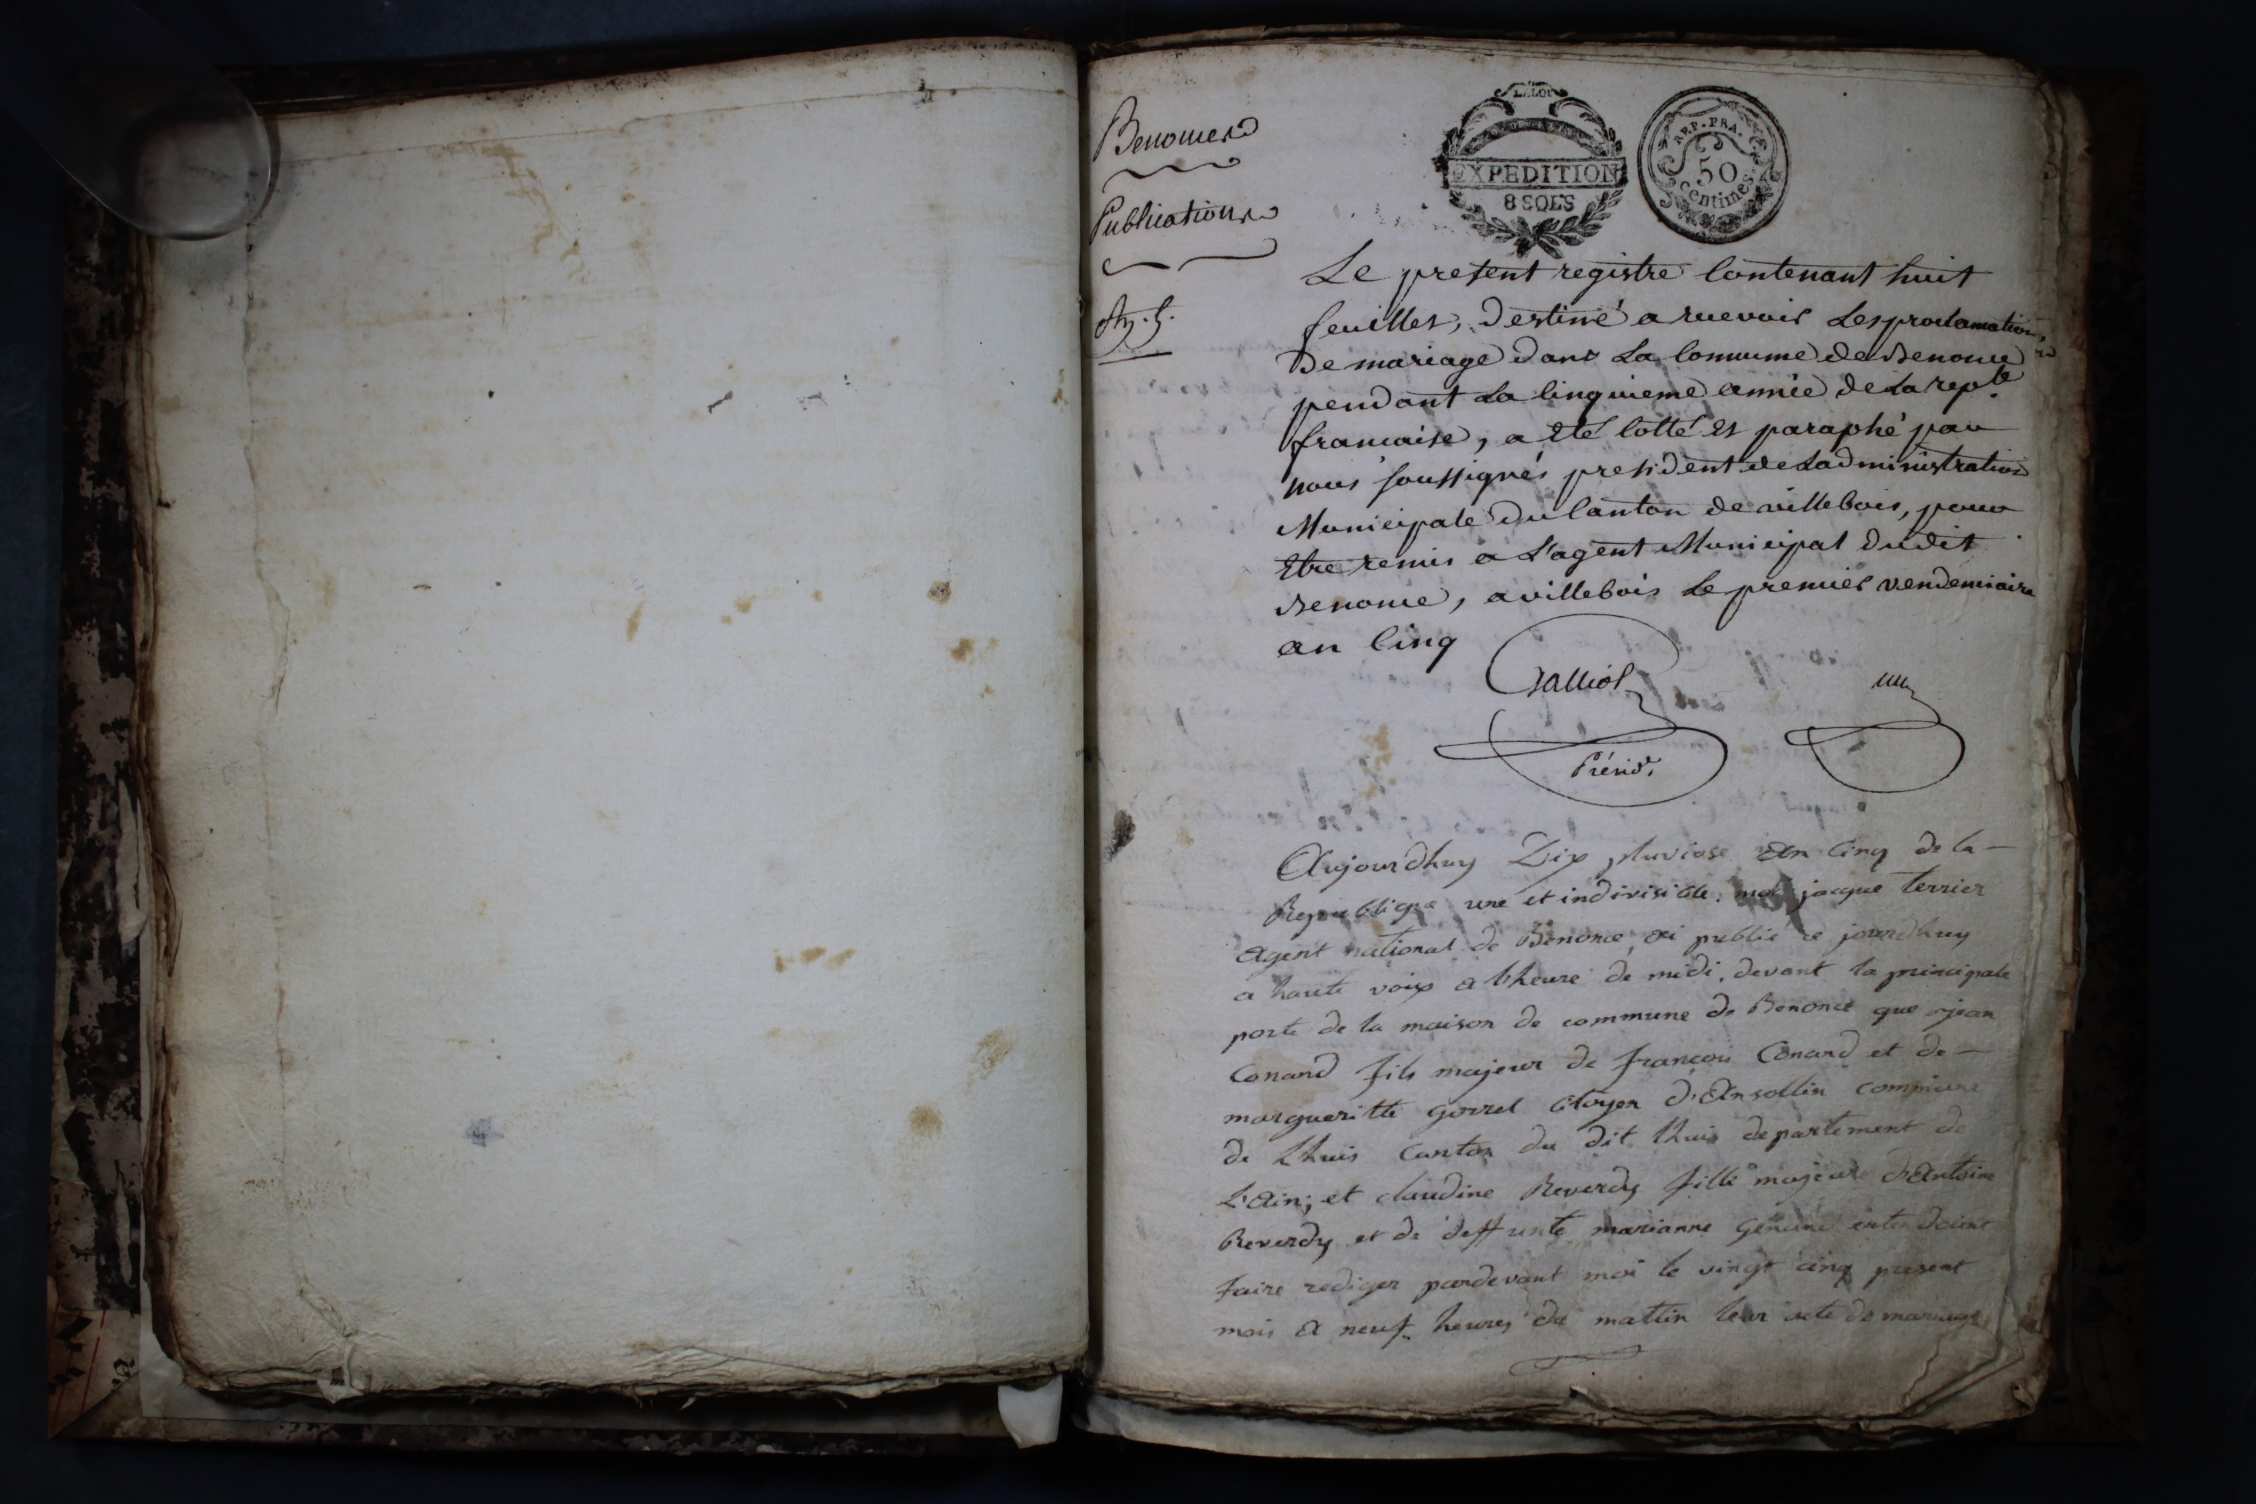 Benonce
Publications
An. 5.
LA LOI
EXPEDITION
8 SOLS
REP. FRA.
50
centimes.
Le present registre Contenant huit
feuilles, destiné a recevoir Les proclamations
de mariage dans La Commune de Benonce
pendant La Cinquieme année de La repb.
francaise, a Eté Cotté Et paraphé par
nous soussignés president de Ladministration
Municipale du Canton de villebois, pour
Etre remis a L'agent Municipal dudit
Benonce, a villebois Le premier vendemiaire
an Cinq
Galliot
Présidt.
Aujourdhuy Dix pluviose An Cinq de la
Republique une et indivisible, moi jacque terrier
Agent national de Benonce, ai publié ce jourdhuy
a haute voix a lheure de midi, devant la principale
porte de la maison de commune de Benonce que jean
Conand fils majeur de françois Conand et de
margueritte gorrel Citoyen d'Ansollin commune
de Lhuis Canton du dit Lhuis departement de
L'Ain; et claudine Reverdy fille majeure d'Antoine
Reverdy et de deffunte marianne entendoint
faire rediger pardevant moi le vingt cinq present
mois a neuf heures du mattin leur acte de mariage